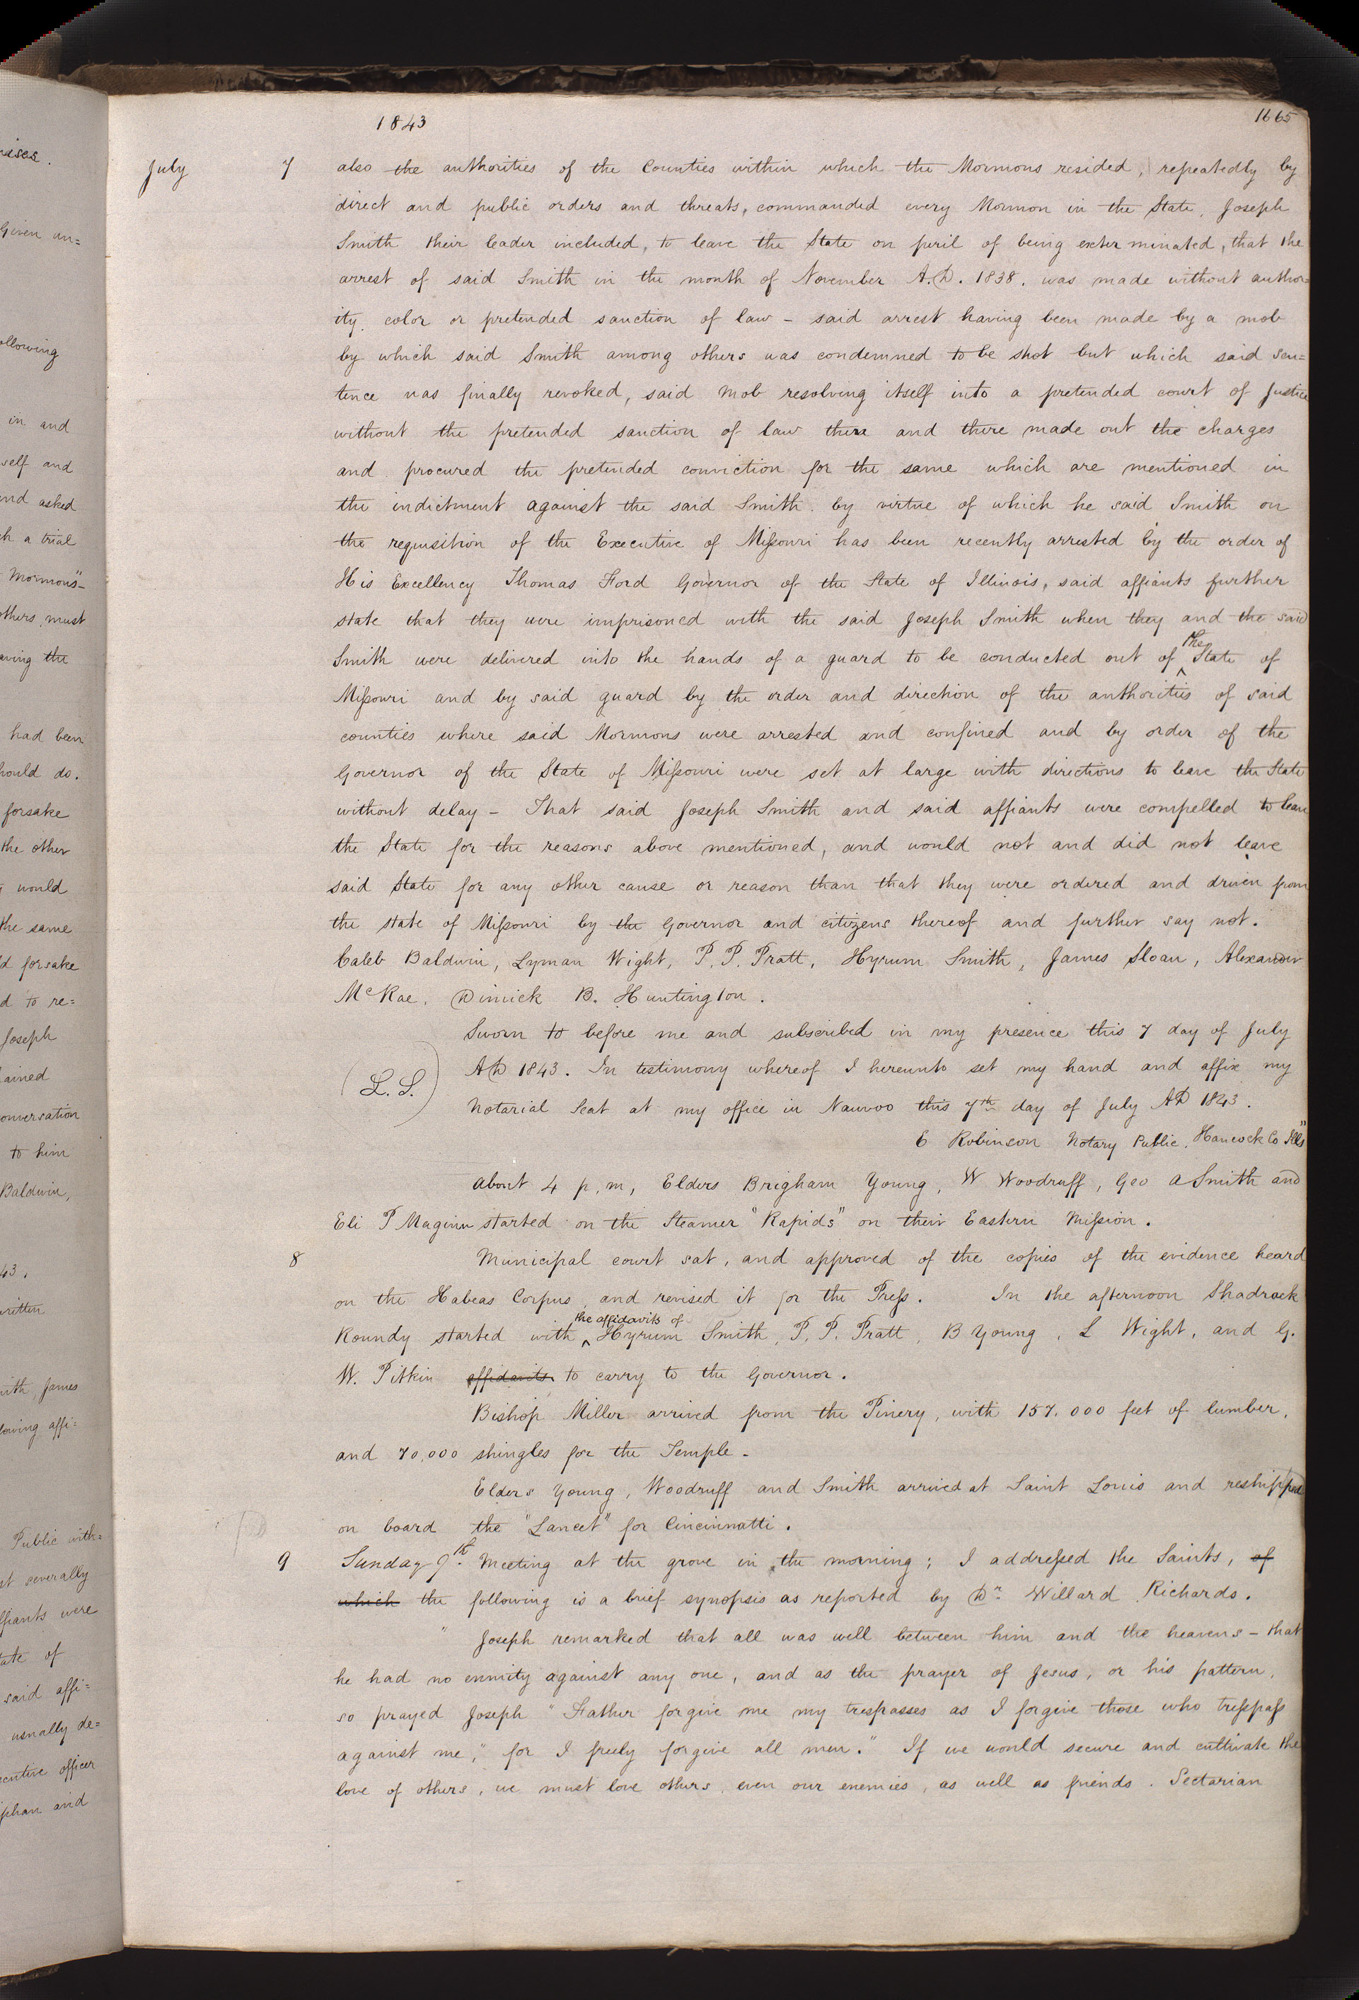 1843
1665
July 7 also the authorities of the Counties within which the Mormons resided, repeatedly by
direct and public orders and threats, commanded every Mormon in the State, Joseph
Smith their leader included, to leave the State on peril of being exter minated, that the
arrest of said Smith in the month of November A.D. 1838. was made without author=
ity, color or pretended sanction of law – said arrest having been made by a mob
by which said Smith among others was condemned to be shot but which said sen=
tence was finally revoked, said mob resolving itself into a pretended court of Justice
without the pretended sanction of law then and there made out the charges
and procured the pretended conviction for the same which are mentioned in
the indictment against the said Smith. by virtue of which he said Smith on
the requisition of the Executive of Missouri has been recently arrested by the order of
His Excellency Thomas Ford Governor of the State of Illinois, said affiants further
state that they were imprisoned with the said Joseph Smith when they and the said
Smith were delivered into the hands of a guard to be conducted out of ^the State of
Missouri and by said guard by the order and direction of the authorities of said
counties where said Mormons were arrested and confined and by order of the
Governor of the State of Missouri were set at large with directions to leave the State
without delay – That said Joseph Smith and said affiants were compelled to leave
the State for the reasons above mentioned, and would not and did not leave
said State for any other cause or reason than that they were ordered and driven from
the state of Missouri by the Governor and citizens thereof and further say not.
Caleb Baldwin, Lyman Wight, P. P. Pratt, Hyrum Smith, James Sloan, Alexander
McRae, Dimick B. Huntington.
Sworn to before me and subscribed in my presence this 7 day of July
(L. S.) AD 1843. In testimony whereof I hereunto set my hand and affix my
Notarial Seat at my office in Nauvoo this 7th day of July AD 1843.
E Robinson Notary Public, Hancock Co Ills"
About 4 p, m, Elders Brigham Young, W Woodruff, Geo A Smith and
Eli P Maginn started on the Steamer "Rapids" on their Eastern Mission.
8 Municipal court sat, and approved of the copies of the evidence heard
on the Habeas Corpus and revised it for the Press. In the afternoon Shadrack
Roundy started with ^the affidavits of Hyrum Smith, P. P. Pratt, B Young, L Wight, and G.
W. Pitkin affidavits to carry to the Governor.
Bishop Miller arrived from the Pinery, with 157.000 feet of lumber,
and 70,000 shingles for the Temple –
Elders Young, Woodruff and Smith arrived at Saint Louis and reshipped
on board the "Lancet" for Cincinnatti.
9 Sunday 9th. Meeting at the grove in the morning; I addressed the Saints, of
which the following is a brief synopsis as reported by Dr. Willard Richards.
" Joseph remarked that all was well between him and the heavens – that
he had no enmity against any one, and as the prayer of Jesus, or his pattern,
so prayed Joseph "Father forgive me my trespasses as I forgive those who trespass
against me," for I freely forgive all men." If we would secure and cultivate the
love of others, we must love others, even our enemies, as well as friends. Sectarian